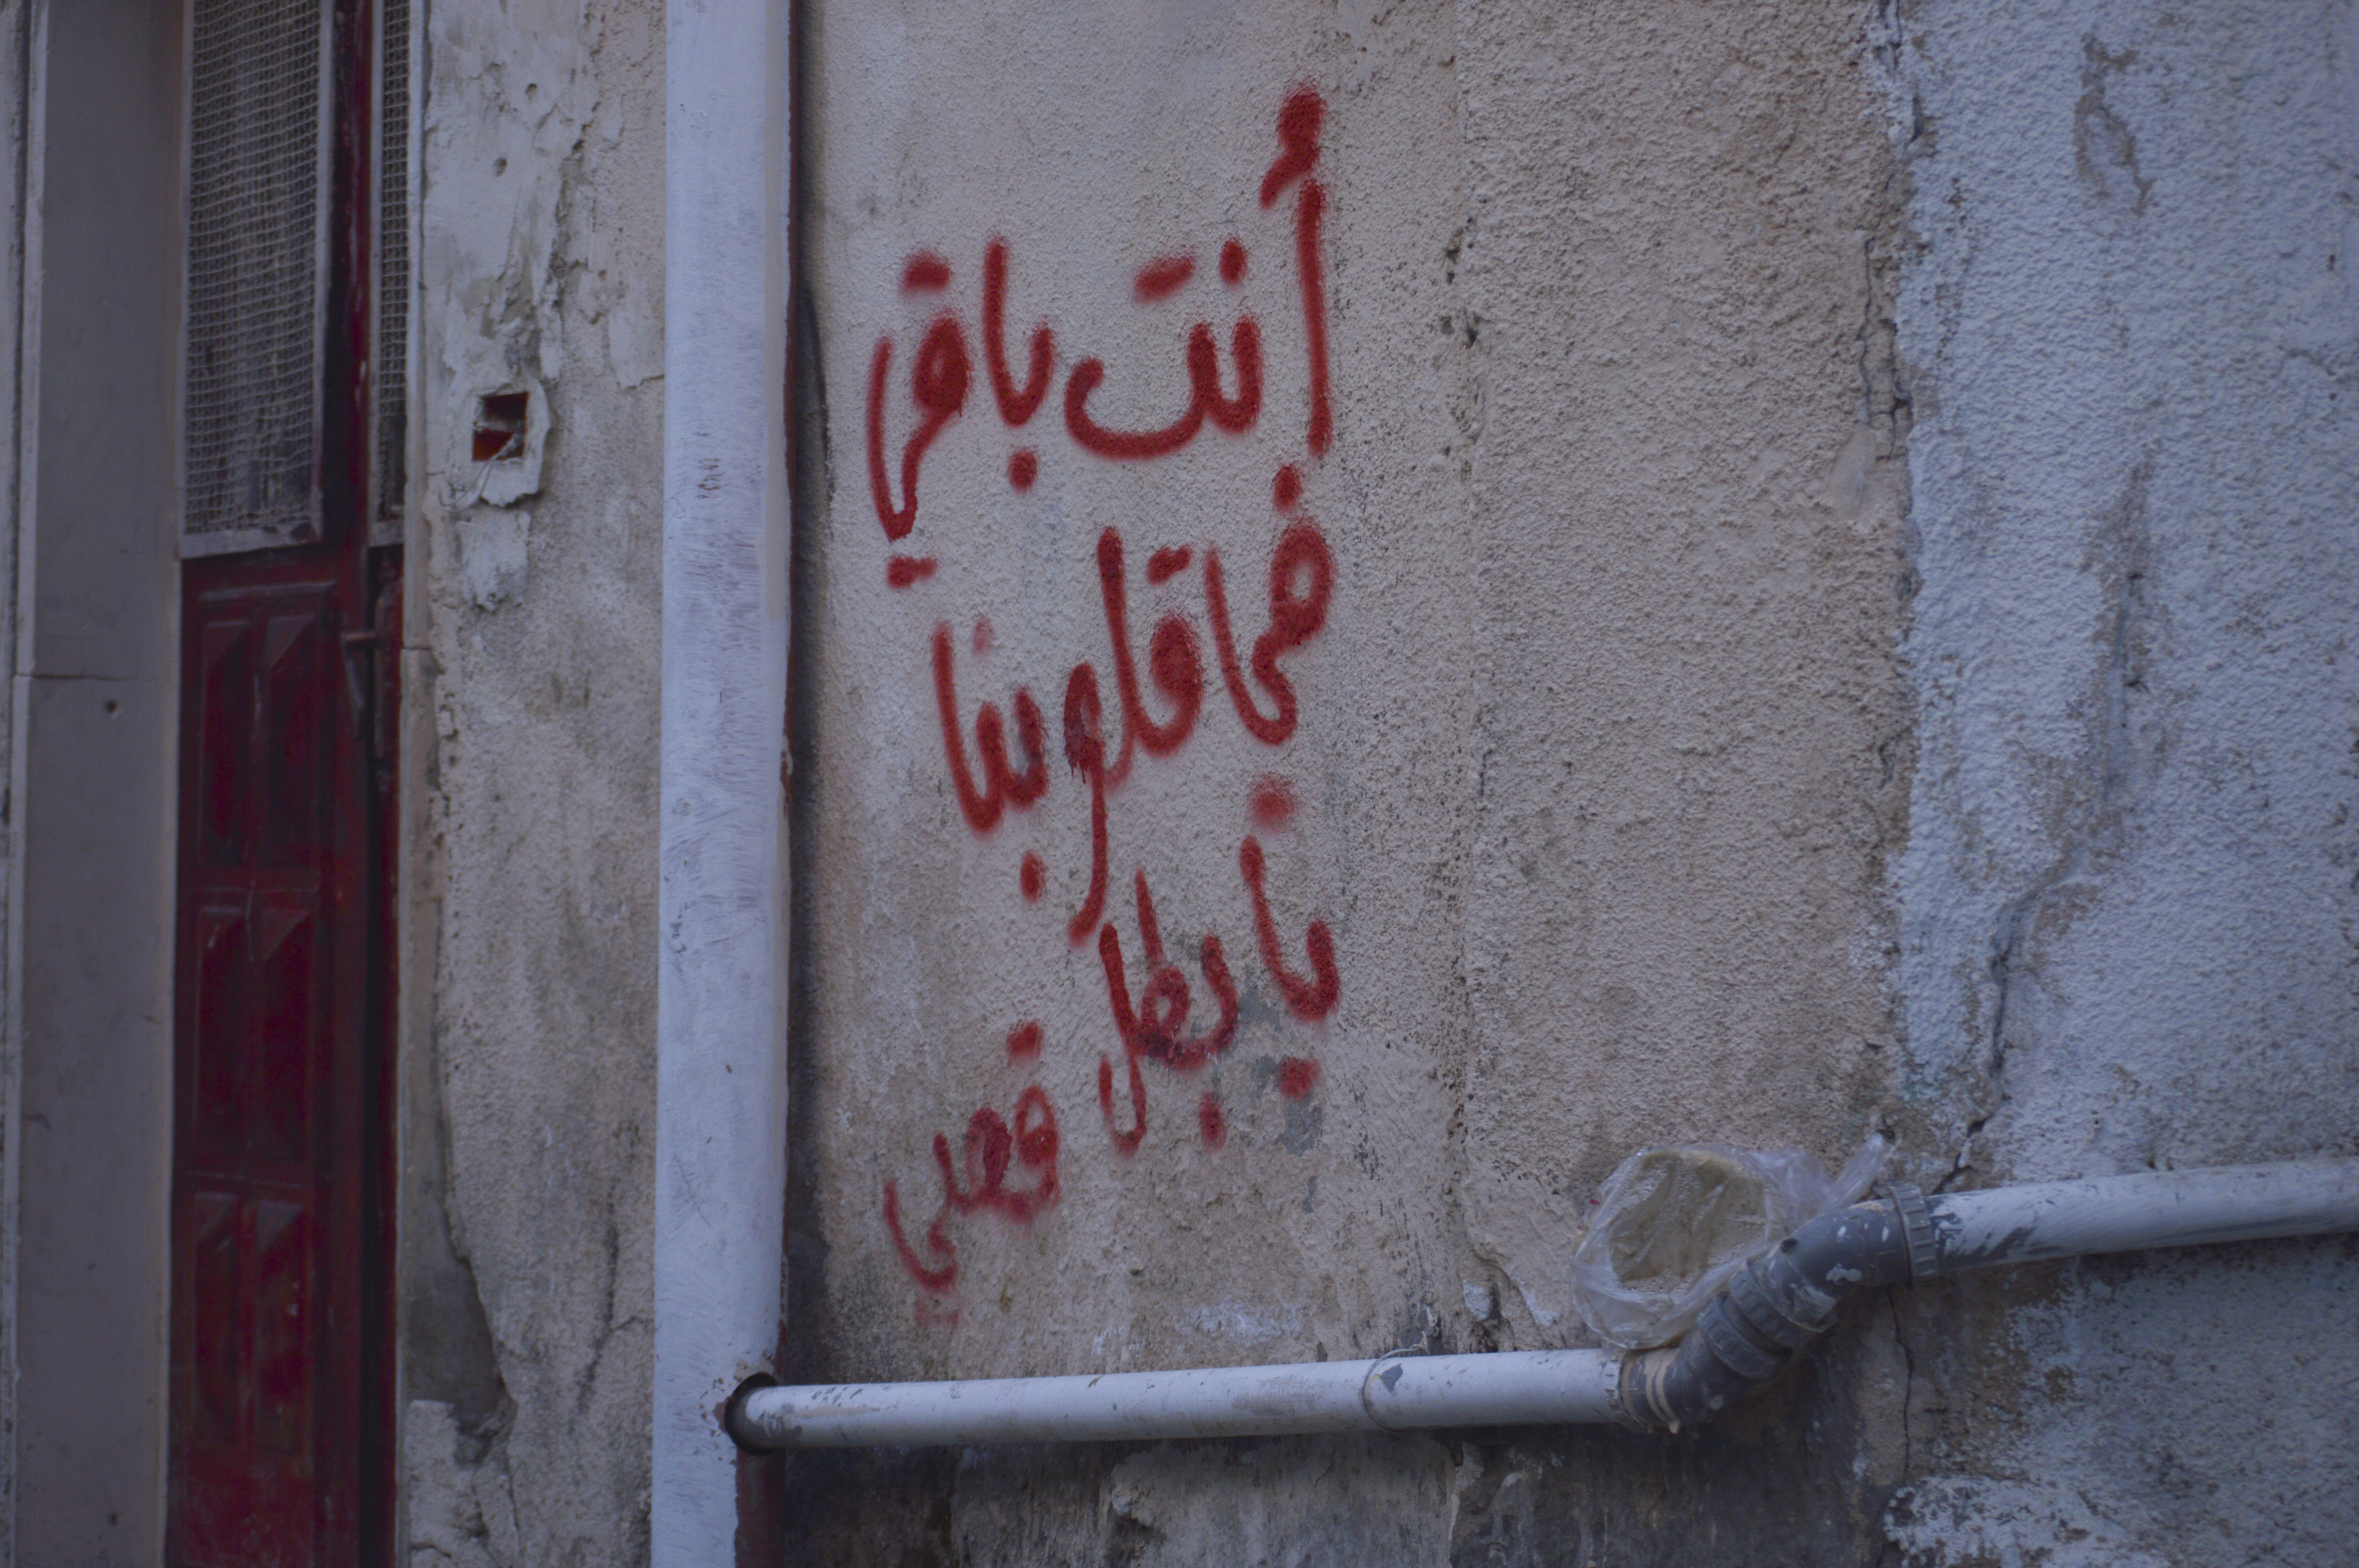 أنت باقي
في قلوبنا
يا بطل
قصي